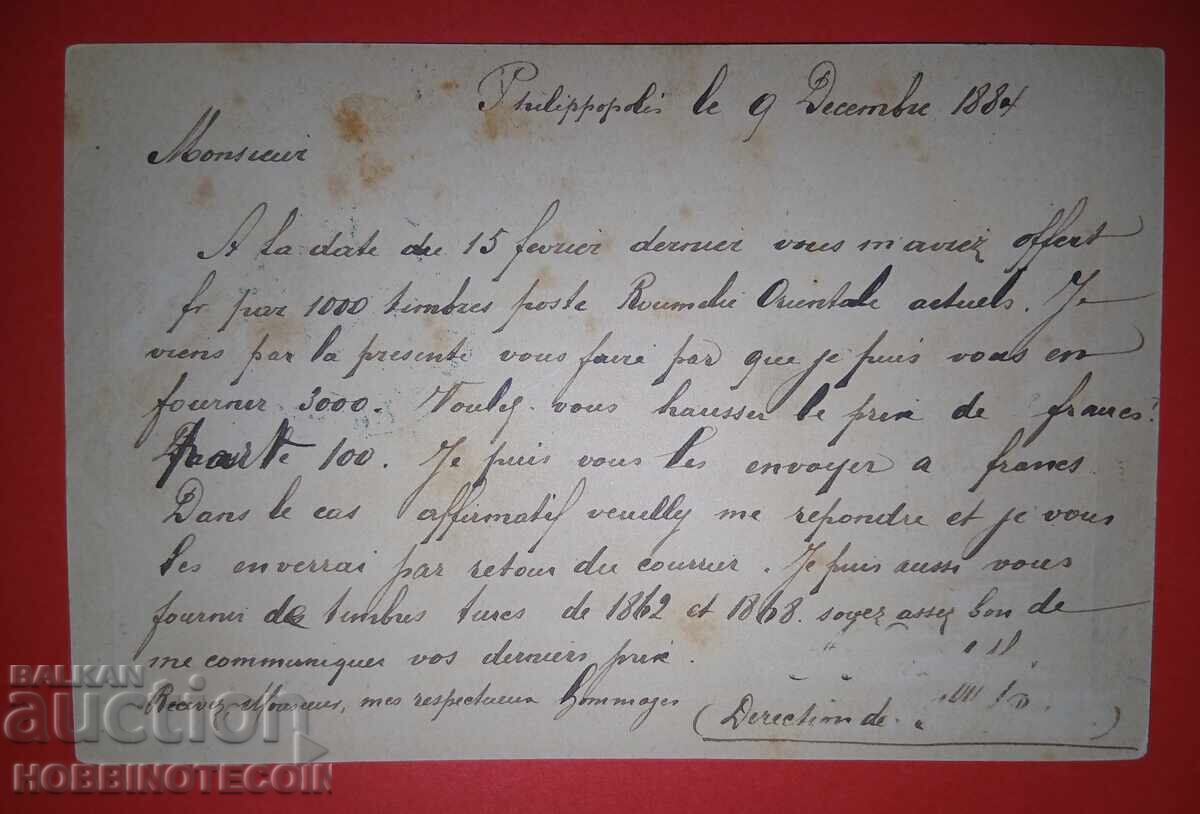 Philippopolis le 9 Decembre 1884
Monsieur
A la date du 15 fevrier dernier vous m'aviez offert
fr par 1000 timbres poste Roumelie Orientale actuels. Je
viens par la presente vous faire par que je puis vous en
fournir 3000. Voulez-vous hausser le prix de francs
100. Je puis vous les envoyer a francs
Dans le cas affirmatif veuillez me repondre et je vous
les enverrai par retour du courrier. Je puis aussi vous
fournir de timbres turcs de 1862 et 1868. soyez assez bon de
me communiquer vos derniers prix.
Recevez Monsieur, mes respectueux hommages
(Derection de
BALKAN
auction
HOBBINOTECOIN